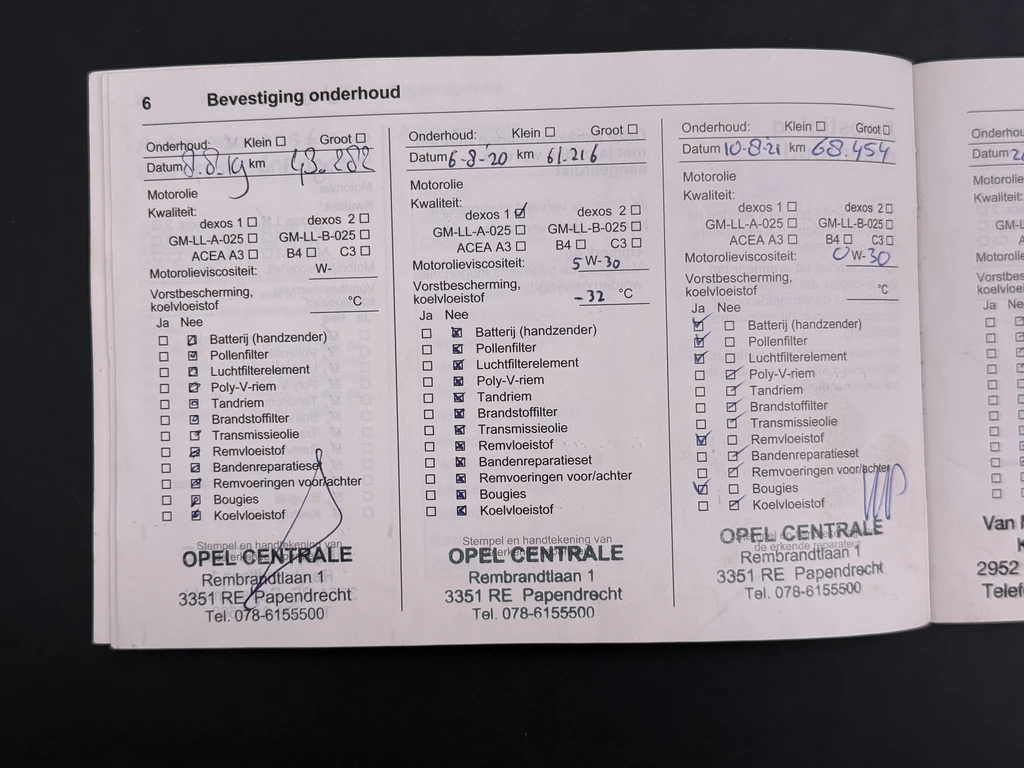 6 Bevestiging onderhoud
Onderhoud: Klein ☐ Groot ☐
Datum 8.8.19 km 43.282
Motorolie
Kwaliteit:
dexos 1 ☐ dexos 2 ☐
GM-LL-A-025 ☐ GM-LL-B-025 ☐
ACEA A3 ☐ B4 ☐ C3 ☐
Motorolieviscositeit: W-
Vorstbescherming,
koelvloeistof °C
Ja Nee
☐ ☑ Batterij (handzender)
☐ ☑ Pollenfilter
☐ ☑ Luchtfilterelement
☐ ☑ Poly-V-riem
☐ ☑ Tandriem
☐ ☑ Brandstoffilter
☐ ☑ Transmissieolie
☐ ☑ Remvloeistof
☐ ☑ Bandenreparatieset
☐ ☑ Remvoeringen voor/achter
☐ ☑ Bougies
☐ ☑ Koelvloeistof
Stempel en handtekening van
OPEL CENTRALE
Rembrandtlaan 1
3351 RE Papendrecht
Tel. 078-6155500
Onderhoud: Klein ☐ Groot ☐
Datum 6-8-20 km 61.216
Motorolie
Kwaliteit:
dexos 1 ☑ dexos 2 ☐
GM-LL-A-025 ☐ GM-LL-B-025 ☐
ACEA A3 ☐ B4 ☐ C3 ☐
Motorolieviscositeit: 5 W-30
Vorstbescherming,
koelvloeistof -32 °C
Ja Nee
☐ ☒ Batterij (handzender)
☐ ☒ Pollenfilter
☐ ☒ Luchtfilterelement
☐ ☒ Poly-V-riem
☐ ☒ Tandriem
☐ ☒ Brandstoffilter
☐ ☒ Transmissieolie
☐ ☒ Remvloeistof
☐ ☒ Bandenreparatieset
☐ ☒ Remvoeringen voor/achter
☐ ☒ Bougies
☐ ☒ Koelvloeistof
Stempel en handtekening van
OPEL CENTRALE
Rembrandtlaan 1
3351 RE Papendrecht
Tel. 078-6155500
Onderhoud: Klein ☐ Groot ☐
Datum 10-8-21 km 68.454
Motorolie
Kwaliteit:
dexos 1 ☐ dexos 2 ☐
GM-LL-A-025 ☐ GM-LL-B-025 ☐
ACEA A3 ☐ B4 ☐ C3 ☐
Motorolieviscositeit: 0 W-30
Vorstbescherming,
koelvloeistof °C
Ja Nee
☑ ☐ Batterij (handzender)
☑ ☐ Pollenfilter
☑ ☐ Luchtfilterelement
☐ ☑ Poly-V-riem
☐ ☑ Tandriem
☐ ☑ Brandstoffilter
☐ ☑ Transmissieolie
☑ ☐ Remvloeistof
☐ ☑ Bandenreparatieset
☐ ☑ Remvoeringen voor/achter
☑ ☐ Bougies
☐ ☑ Koelvloeistof
OPEL CENTRALE
de erkende reparateur
Rembrandtlaan 1
3351 RE Papendrecht
Tel. 078-6155500
Onderhou
Datum 2
Motorolie
Kwaliteit:
GM-L
A
Motorolie
Vorstbes
koelvloei
Ja Ne
Van
K
2952
Telef